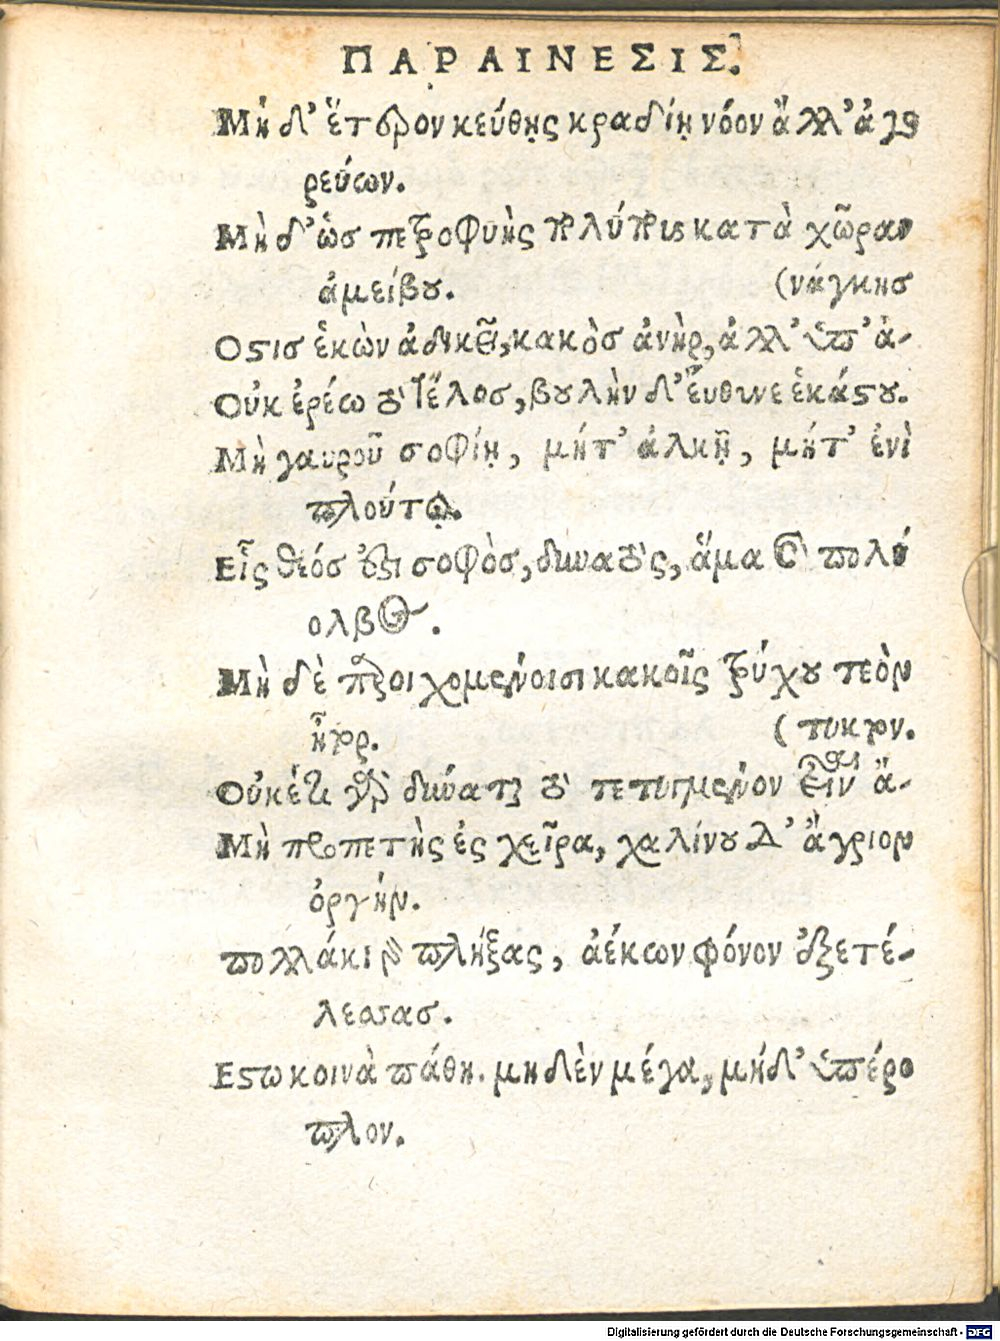 ΠΑΡΑΙΝΕΣΙΣ.
Μὴ δ' ἕτερον κεύθῃς κραδίῃ νόον ἄλλ' ἀγο
ρεύων.
Μὴ δ' ὡσ πετροφυὴς πολύπους κατὰ χῶραν
ἀμείβου. (νάγκησ
Οστισ ἑκὼν ἀδικεῖ, κακὸσ ἀνὴρ, ἀλλ' ὑπ' ἀ-
Οὐκ ἐρέω τὸ τέλοσ, βουλὴν δ' εὔθυνε ἑκάστου.
Μὴ γαυροῦ σοφίῃ, μήτ' ἀλκῇ, μήτ' ἐνὶ
πλούτῳ.
Εἷς θεόσ ἐστι σοφὸσ, δυνατός, ἅμα καὶ πολύ
ολβος.
Μὴ δὲ παροιχομένοισι κακοῖς τρύχου τεὸν
ἦτορ. (τυκτον.
Οὐκέτι γὰρ δύναται τὸ τετυγμένον εἶναι ἄ-
Μὴ προπετὴς ἐς χεῖρα, χαλίνου δ' ἄγριον
ὀργήν.
πολλάκι γὰρ πλήξας, ἀέκων φόνον ἐξετέ-
λεσσασ.
Εστω κοινὰ πάθη. μηδὲν μέγα, μήδ' ὑπέρο
πλον.
Digitalisierung gefördert durch die Deutsche Forschungsgemeinschaft - DFG